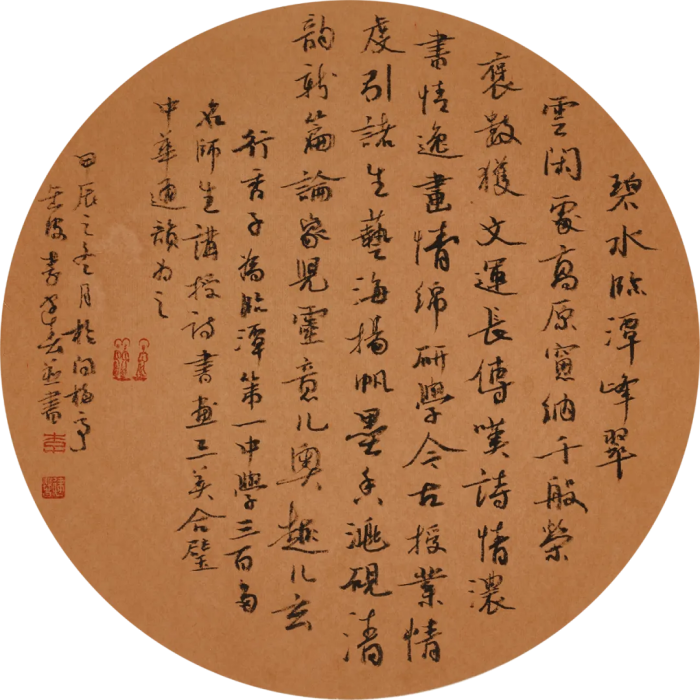 碧水臨潭峰翠
雲閑處高原窗納千般榮
褒數獲文運長傳嘆詩情濃
書情逸畫情綿研學今古授業情
虔引諸生藝海揚帆墨香洮硯清
韵新篇論兒靈意儿奧趣儿玄
行香子為臨潭第一中學三百多
名師生講授詩書畫三美合璧
中華通韻為之
甲辰之冬月於問梅亭
李書